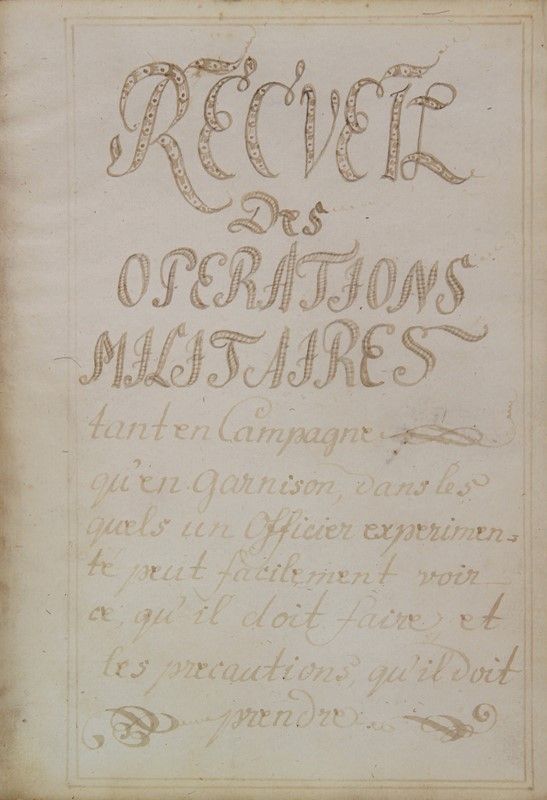 RECVEIL
Des
OPERATIONS
MILITAIRES
tant en Campagne
qu'en Garnison, dans les
quels un Officier experimen=
té peut facilement voir
ce, qu'il doit faire et
les precautions, qu'il doit
prendre